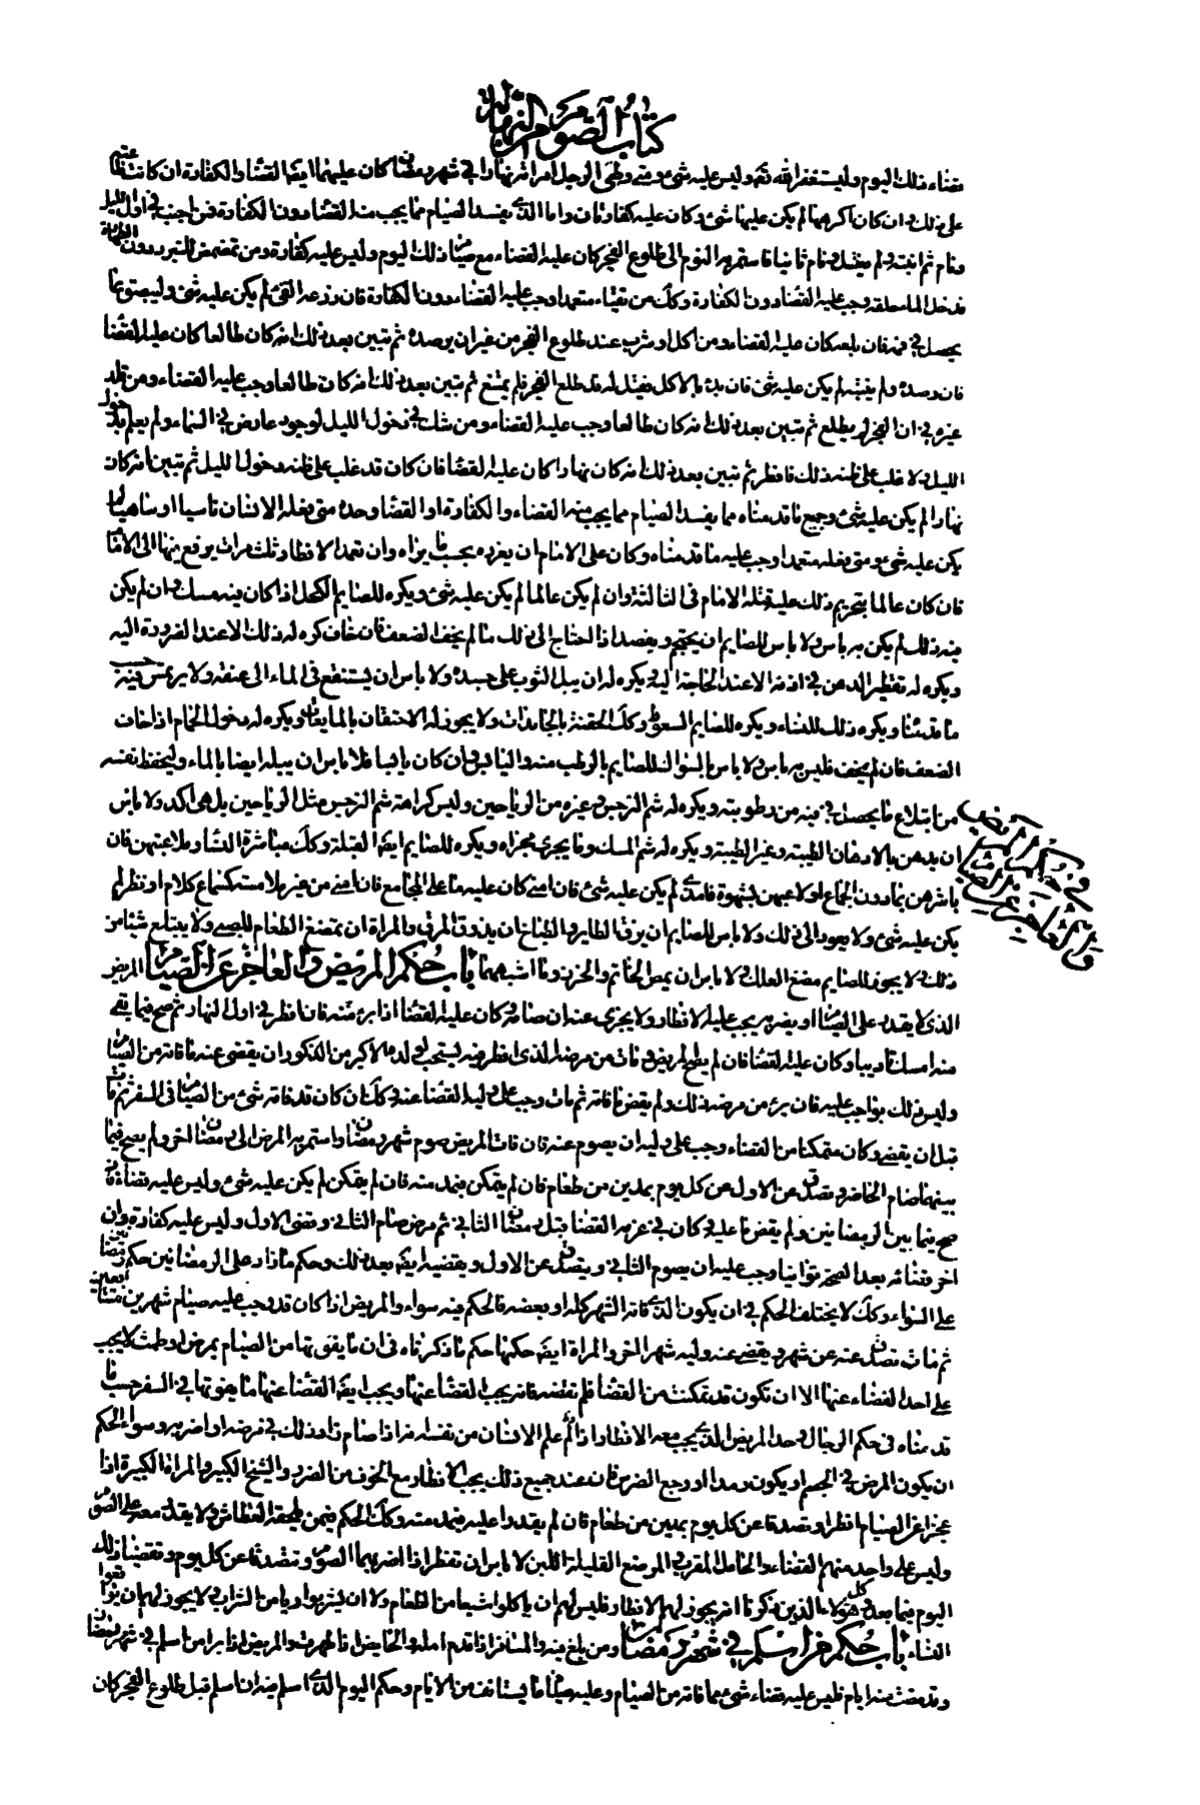 كتاب الصوم من النهاية
قضاء ذلك اليوم وليستغفر الله تعه وليس عليه شئ ومتى وطى الرجل امراته نهارا في شهر رمضان كان عليهما ايضا القضاء والكفارة ان كانت طاوعته
على ذلك وان كان اكرهها لم يكن عليها شئ وكان عليه كفارتان واما الذى يفسد الصيام مما يجب منه القضاء دون الكفارة فمن اجنب في اول الليل
ونام ثم انتبه ولم يغتسل ونام ثانيا فاستمر به النوم الى طلوع الفجر كان عليه القضاء مع صيام ذلك اليوم وليس عليه كفارة ومن تمضمض للتبرد دون الطهارة
فدخل الماء حلقه وجب عليه القضاء دون الكفارة وكك من تقياء متعمدا وجب عليه القضاء دون الكفارة فان ذرعه القئ لم يكن عليه شئ وليبصق بما
يحصل في فيه فان بلعه كان عليه القضاء ومن اكل او شرب عند طلوع الفجر من غير ان يرصده ثم تبين بعد ذلك انه كان طالعا كان عليه القضاء
فان رصده ولم يتبينه لم يكن عليه شئ فان بدء بالاكل فقيل له قد طلع الفجر فلم يمتنع ثم تبين بعد ذلك انه كان طالعا وجب عليه القضاء ومن قلد
غيره في ان الفجر لم يطلع ثم تبين بعد ذلك انه كان طالعا وجب عليه القضاء ومن شك في دخول الليل لوجود عارض في السماء ولم يعلم بدخول
الليل ولا غلب على ظنه ذلك فافطر ثم تبين بعد ذلك انه كان نهارا كان عليه القضاء فان كان قد غلب على ظنه دخول الليل ثم تبين انه كان
نهارا لم يكن عليه شئ وجميع ما قدمناه مما يفسد الصيام مما يجب منه القضاء والكفارة او القضاء وحده متى فعله الانسان ناسيا او ساهيا لم
يكن عليه شئ ومتى فعله متعمدا وجب عليه ما قدمناه وكان على الامام ان يعزره بحسب ما يراه وان تعمد الافطار ثلث مرات يرفع فيها الى الامام
فان كان عالما بتحريم ذلك عليه قتله الامام في الثالثة وان لم يكن عالما لم يكن عليه شئ ويكره للصايم الكحل اذا كان فيه مسك وان لم يكن
فيه ذلك لم يكن به باس ولا باس للصايم ان يحتجم ويفصد اذا احتاج الى ذلك ما لم يخف الضعف فان خاف كره له ذلك الا عند الضرورة اليه
ويكره له تقطير الدهن في اذنه الا عند الحاجة اليه ويكره له ان يبل الثوب على جسده ولا باس ان يستنقع في الماء الى عنقه ولا يرتمس فيه حسب
ما قدمنا ويكره ذلك للنساء ويكره للصايم السعوط وكك الحقنة بالجامدات ولا يجوز له الاحتقان بالمايعات ويكره له دخول الحمام اذا خاف
الضعف فان لم يخف فليس به باس ولا باس بالسواك للصايم بالرطب منه واليابس وان كان يابسا فلا باس ان يبله ايضا بالماء وليحفظ نفسه
من ابتلاع ما يحصل في فيه من رطوبته ويكره له شم النرجس وغيره من الرياحين وليس كراهة شم النرجس مثل الرياحين بل هي اكد ولا باس
ان يدهن بالادهان الطيبة وغير الطيبة ويكره له شم المسك وما يجري مجراه ويكره للصايم ايضا القبلة وكك مباشرة النساء وملاعبتهن فان
باشرهن بما دون الجماع او لاعبهن بشهوة فامذى لم يكن عليه شئ فان امنى كان عليه ما على المجامع فان امنى من غير ملامسة كسماع كلام او نظر لم
يكن عليه شئ ولا يعود الى ذلك ولا باس للصايم ان يزق الطاير والطباخ ان يذوق المرق والمراة ان تمضغ الطعام للصبي ولا يبتلع شيئا من
ذلك ولا يجوز للصايم مضغ العلك ولا باس ان يمص الخاتم والخرز وما اشبههما باب حكم المريض والعاجز عن الصيام المريض
في حكم المريض
والعاجز عن الصيام
الذى لا يقدر على الصيام او يضر به يجب عليه الافطار ولا يجزى عنه ان صامه وكان عليه القضاء اذا برئ منه فان افطر في اول النهار ثم صح فيما بقى
منه امسك تاديبا وكان عليه القضاء فان لم يصح المريض ومات من مرضه الذى افطر فيه يستحب لولده الاكبر من الذكور ان يقضى عنه ما فاته من الصيام
وليس ذلك بواجب عليه فان برئ من مرضه ذلك ولم يقض ما فاته ثم مات وجب على وليه القضاء عنه وكك ان كان قد فاته شئ من الصيام في السفر ثم مات
قبل ان يقضى وكان متمكنا من القضاء وجب على وليه ان يصوم عنه فان فات المريض صوم شهر رمضان واستمر به المرض الى رمضان اخر ولم يصح فيما
بينهما صام الحاضر وتصدق عن الاول عن كل يوم بمدين من طعام فان لم يتمكن فبمد منه فان لم يتمكن لم يكن عليه شئ وليس عليه قضاء فان
صح فيما بين الرمضانين ولم يقض ما عليه وكان في عزمه القضاء قبل رمضان الثاني ثم مرض صام الثاني وقضى الاول وليس عليه كفارة وان
اخر قضائه بعد الصحة توانيا وجب عليه ان يصوم الثاني ويتصدق عن الاول ويقضيه ايضا بعد ذلك وحكم ما زاد على الرمضانين حكم رمضانين
على السواء وكك لا يختلف الحكم في ان يكون الذى فاته الشهر كله او بعضه فالحكم فيه سواء والمريض اذا كان قد وجب عليه صيام شهرين متتابعين
ثم مات تصدق عنه عن شهر ويقضى عنه وليه شهرا اخر والمراة ايضا حكمها حكم ما ذكرناه في ان ما يفوتها من الصيام بمرض او طمث لا يجب
على احد القضاء عنها الا ان تكون قد تمكنت من القضاء فلم تقضه فانه يجب القضاء عنها ويجب ايضا القضاء عنها ما يفوتها في السفر حسب ما
قدمناه في حكم الرجال وحد المرض الذى يجب معه الافطار اذا علم الانسان من نفسه انه اذا صام زاد ذلك في مرضه او اضر به وسواء الحكم
ان يكون المرض في الجسم او يكون رمدا او وجع الضرس فان عند جميع ذلك يجب الافطار مع الخوف من الضرر والشيخ الكبير والمراة الكبيرة اذا
عجزا عن الصيام افطرا وتصدقا عن كل يوم بمدين من طعام فان لم يقدرا عليه فبمد منه وكك الحكم فيمن يلحقه العطاش ولا يقدر معه على الصوم
وليس على واحد منهم القضاء والحامل المقرب والمرضع القليلة اللبن لا باس ان تفطرا اذا اضر بهما الصوم وتتصدقا عن كل يوم وتقضيا ذلك
اليوم فيما بعد وكل هؤلاء الذين ذكرنا انه يجوز لهم الافطار فليس لهم ان ياكلوا شبعا من الطعام ولا ان يشربوا ريا من الشراب ولا يجوز لهم ان يواقعوا
النساء باب حكم من اسلم في شهر رمضان ومن بلغ فيه والمسافر اذا قدم اهله والحايض اذا طهرت والمريض اذا برا من اسلم في شهر رمضان
وقد مضت منه ايام فليس عليه قضاء شئ مما فاته من الصيام وعليه صيام ما يستانف من الايام وحكم اليوم الذى اسلم فيه ان اسلم قبل طلوع الفجر كان